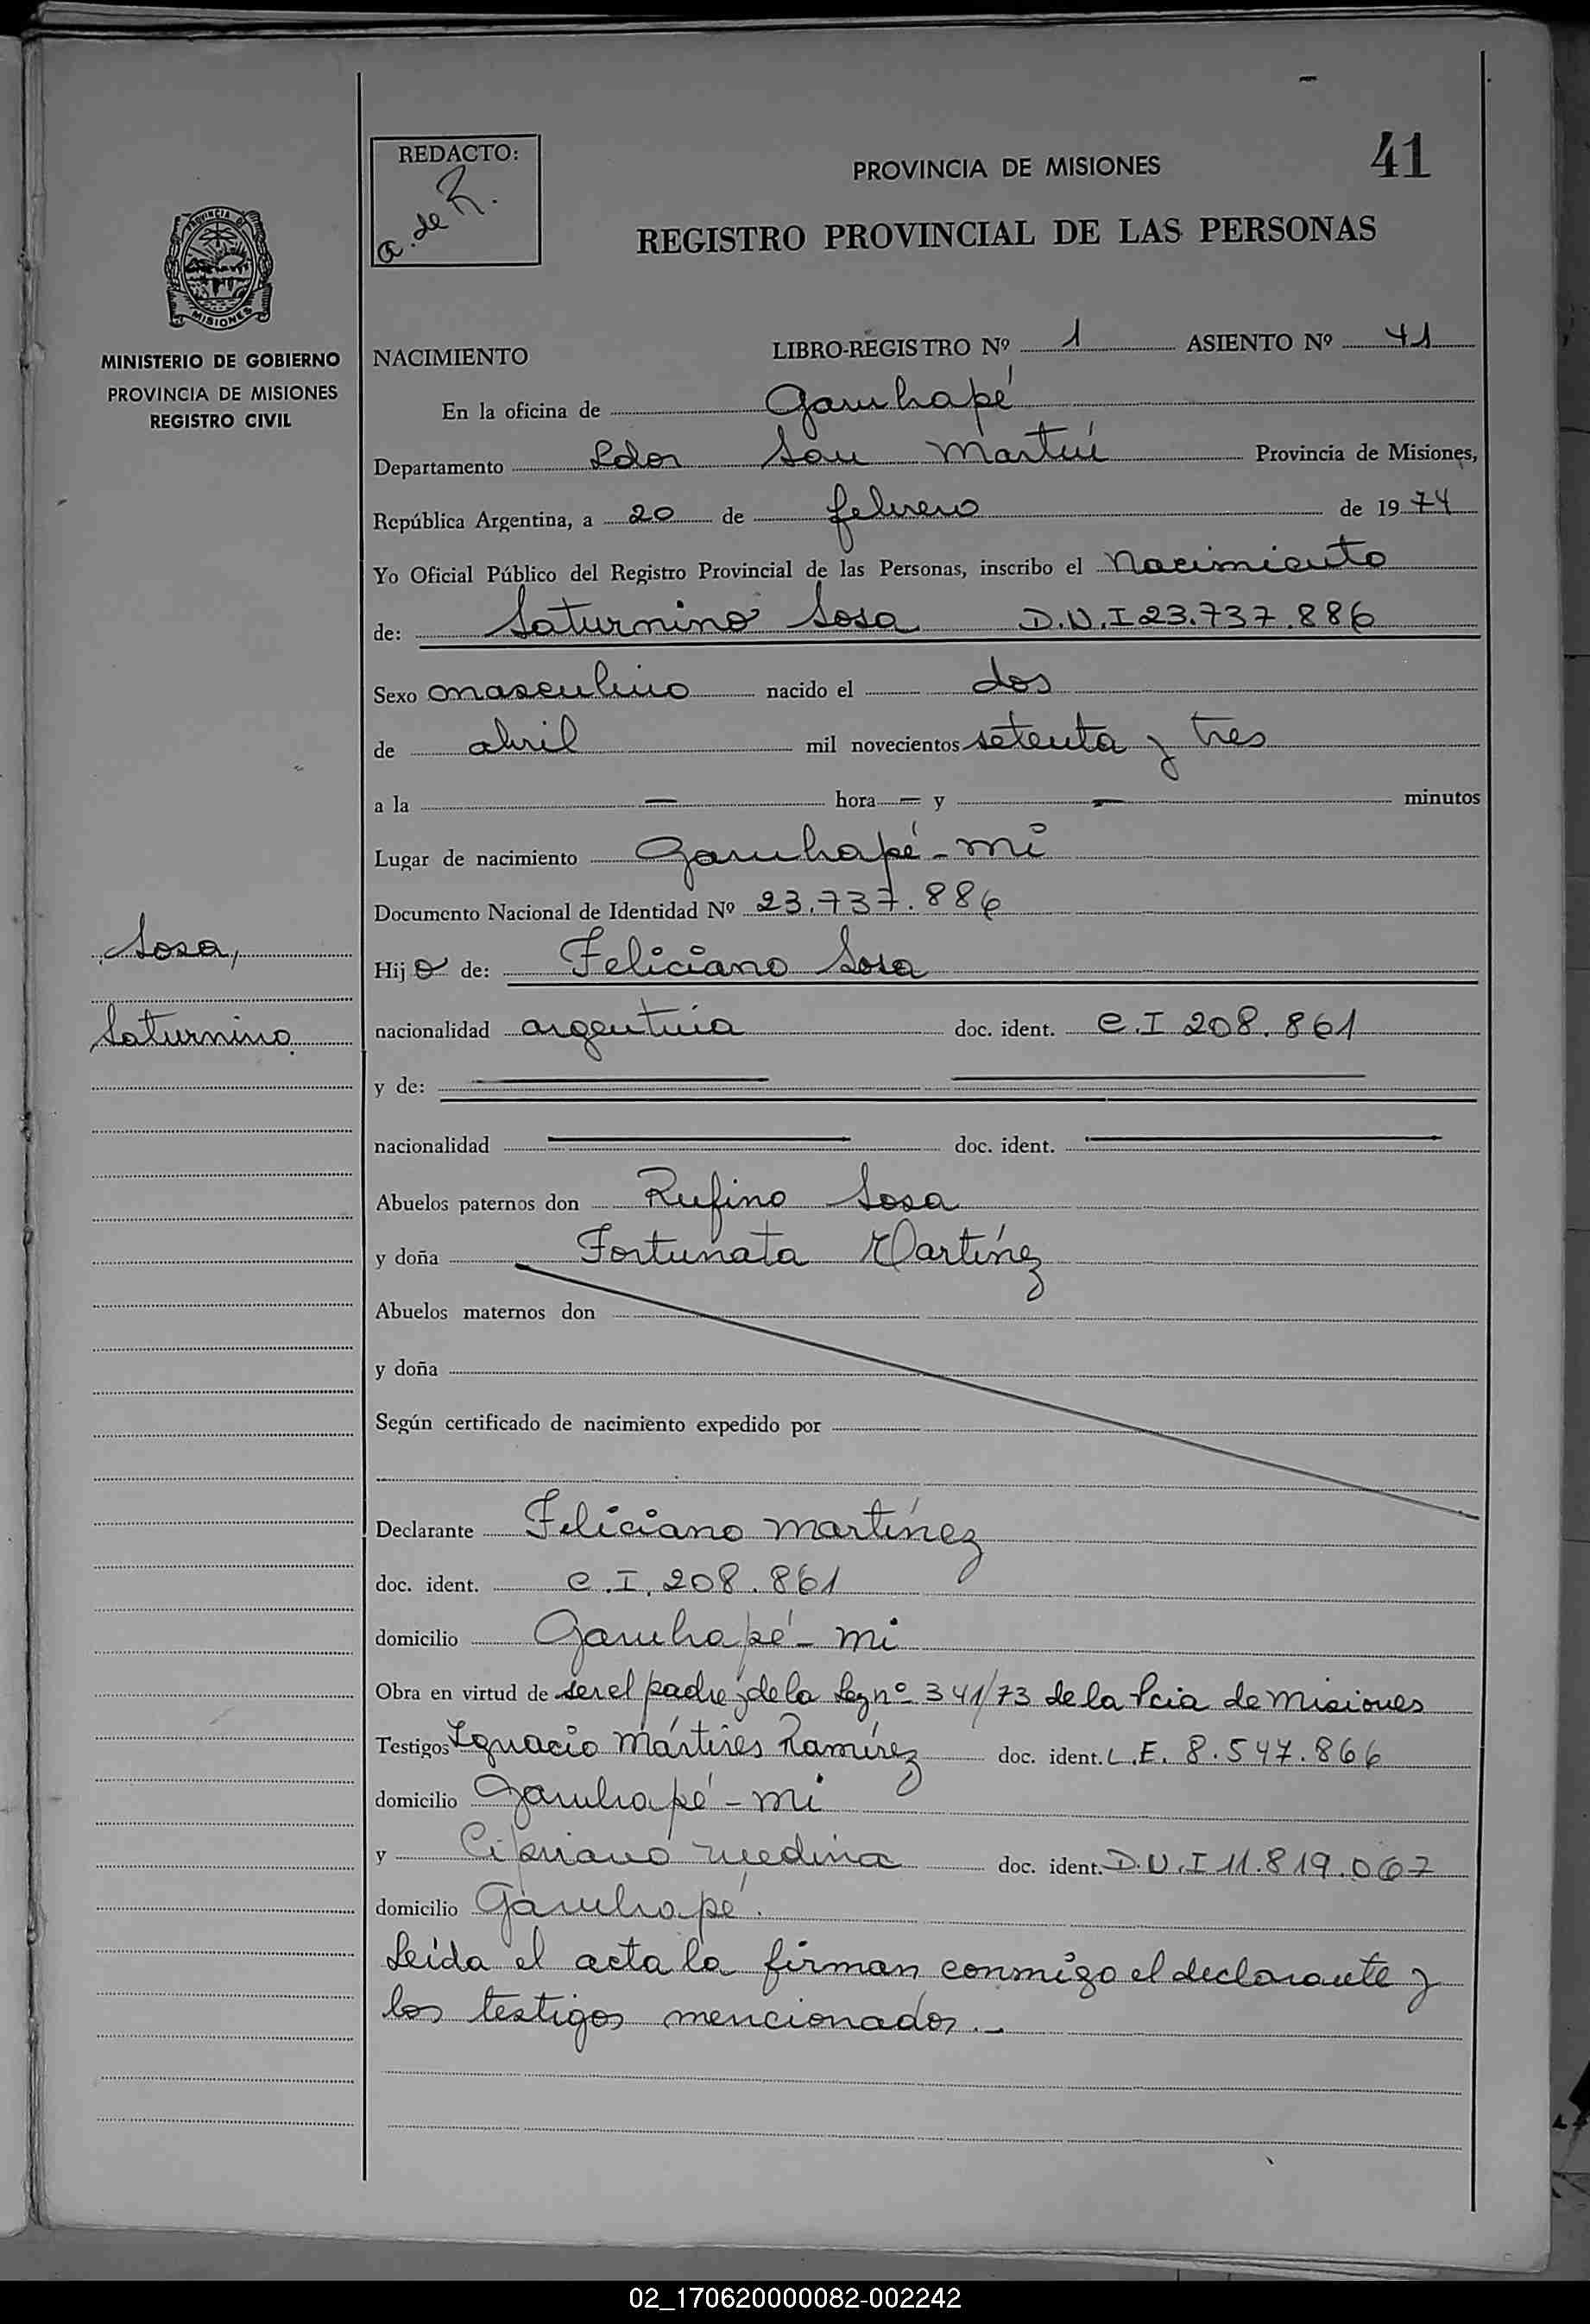 41
REDACTO:
a. de R.
PROVINCIA DE MISIONES
REGISTRO PROVINCIAL DE LAS PERSONAS
PROVINCIA DE
MISIONES
MINISTERIO DE GOBIERNO
PROVINCIA DE MISIONES
REGISTRO CIVIL
NACIMIENTO LIBRO-REGISTRO Nº 1 ASIENTO Nº 41
En la oficina de Garuhapé
Departamento Ldor San Martín Provincia de Misiones,
República Argentina, a 20 de febrero de 1974
Yo Oficial Público del Registro Provincial de las Personas, inscribo el Nacimiento
de: Saturnino Sosa D.N.I 23.737.886
Sexo masculino nacido el dos
de abril mil novecientos setenta y tres
a la — hora — y — minutos
Lugar de nacimiento Garuhapé - mi
Documento Nacional de Identidad Nº 23.737.886
Sosa,
Saturnino
Hijo de: Feliciano Sosa
nacionalidad argentina doc. ident. C.I 208.861
y de:
nacionalidad doc. ident.
Abuelos paternos don Rufino Sosa
y doña Fortunata Martínez
Abuelos maternos don
y doña
Según certificado de nacimiento expedido por
Declarante Feliciano Martínez
doc. ident. C.I. 208.861
domicilio Garuhapé - mi
Obra en virtud de ser el padre y de la Ley nº 341/73 de la Pcia de Misiones
Testigos Ignacio Mártires Ramírez doc. ident. L.E. 8.547.866
domicilio Garuhapé - mi
y Cipriano Medina doc. ident. D.N.I 11.819.067
domicilio Garuhapé.
Leída el acta la firman conmigo el declarante y
los testigos mencionados.-
02_170620000082-002242